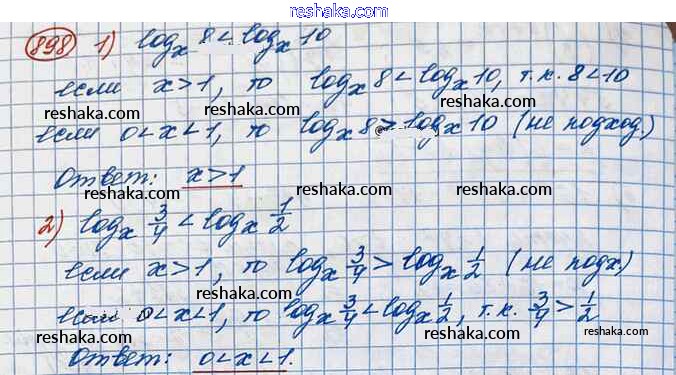 reshaka.com
898 1) log_x 8 < log_x 10
reshaka.com reshaka.com
если x>1, то log_x 8 < log_x 10, т.к. 8<10
reshaka.com reshaka.com reshaka.com
если 0<x<1, то log_x 8 > log_x 10 (не подход.)
reshaka.com
Ответ: x>1
reshaka.com reshaka.com
2) log_x 3/4 < log_x 1/2
reshaka.com
если x>1, то log_x 3/4 > log_x 1/2 (не подх.)
reshaka.com reshaka.com
если 0<x<1, то log_x 3/4 < log_x 1/2, т.к. 3/4 > 1/2
reshaka.com reshaka.com
Ответ: 0<x<1.
reshaka.com reshaka.com